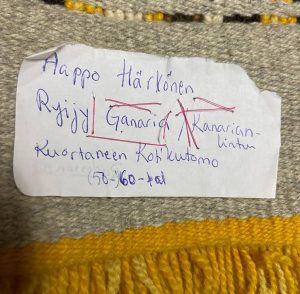 Aappo Härkönen
Ryijy Ganaria Kanarian-
lintu
Kuortaneen Kotikutomo
(50-)60-